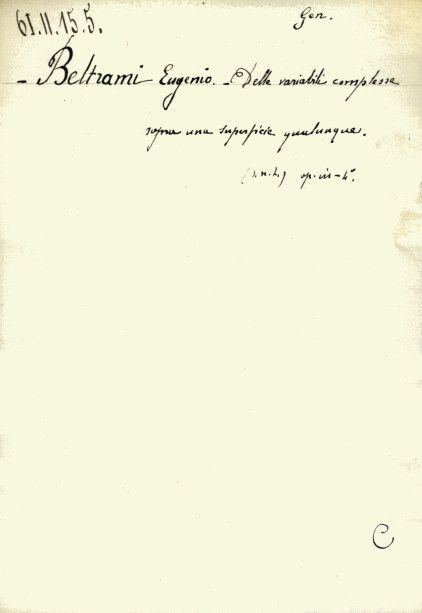 61.11.15.5.
Gen.
- Beltrami Eugenio. - Delle variabili complesse
sopra una superficie qualunque.
(s.n.t.) op. in-4°.
C